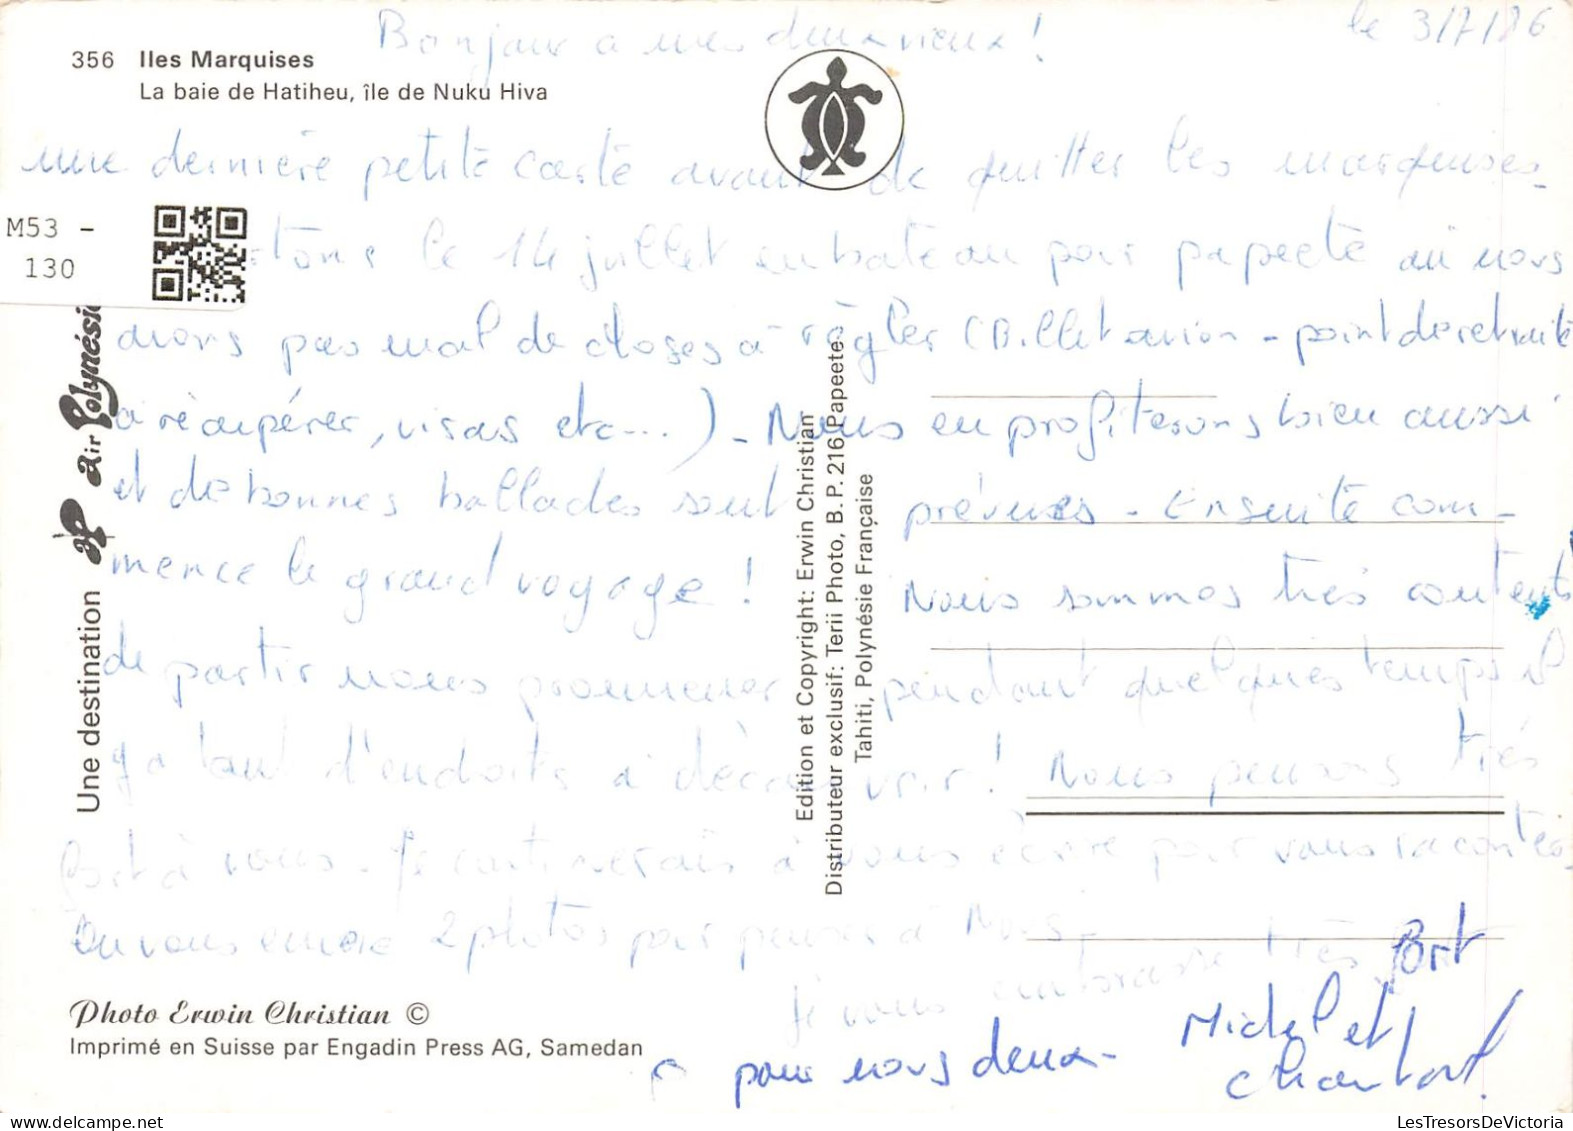 Bonjour a mes deux vieux !
le 3/7/86
356 Iles Marquises
La baie de Hatiheu, île de Nuku Hiva
une dernière petite carte avant de quitter les marquises_
le 14 juillet en bateau pour papeete où nous
avons pas mal de choses à règler (Billet avion - point de retraite
à récupérer, visas etc...) - Nous en profiterons bien aussi
et de bonnes ballades sont prévues - Ensuite com-
mence le grand voyage ! Nous sommes très contents
de partir nous promener pendant quelques temps il
y a tant d'endroits à découvrir ! Nous pensons très
fort à vous - Je continuerais à vous écrire pour vous raconter
vous encore 2 photos pour penser à Nous -
je vous embrasse très fort
pour nous deux -
Michel et
Chantal !
M53 -
130
Une destination Air Polynésie
Edition et Copyright: Erwin Christian
Distributeur exclusif: Terii Photo, B. P. 216 Papeete
Tahiti, Polynésie Française
Photo Erwin Christian ©
Imprimé en Suisse par Engadin Press AG, Samedan
LesTresorsDeVictoria.com